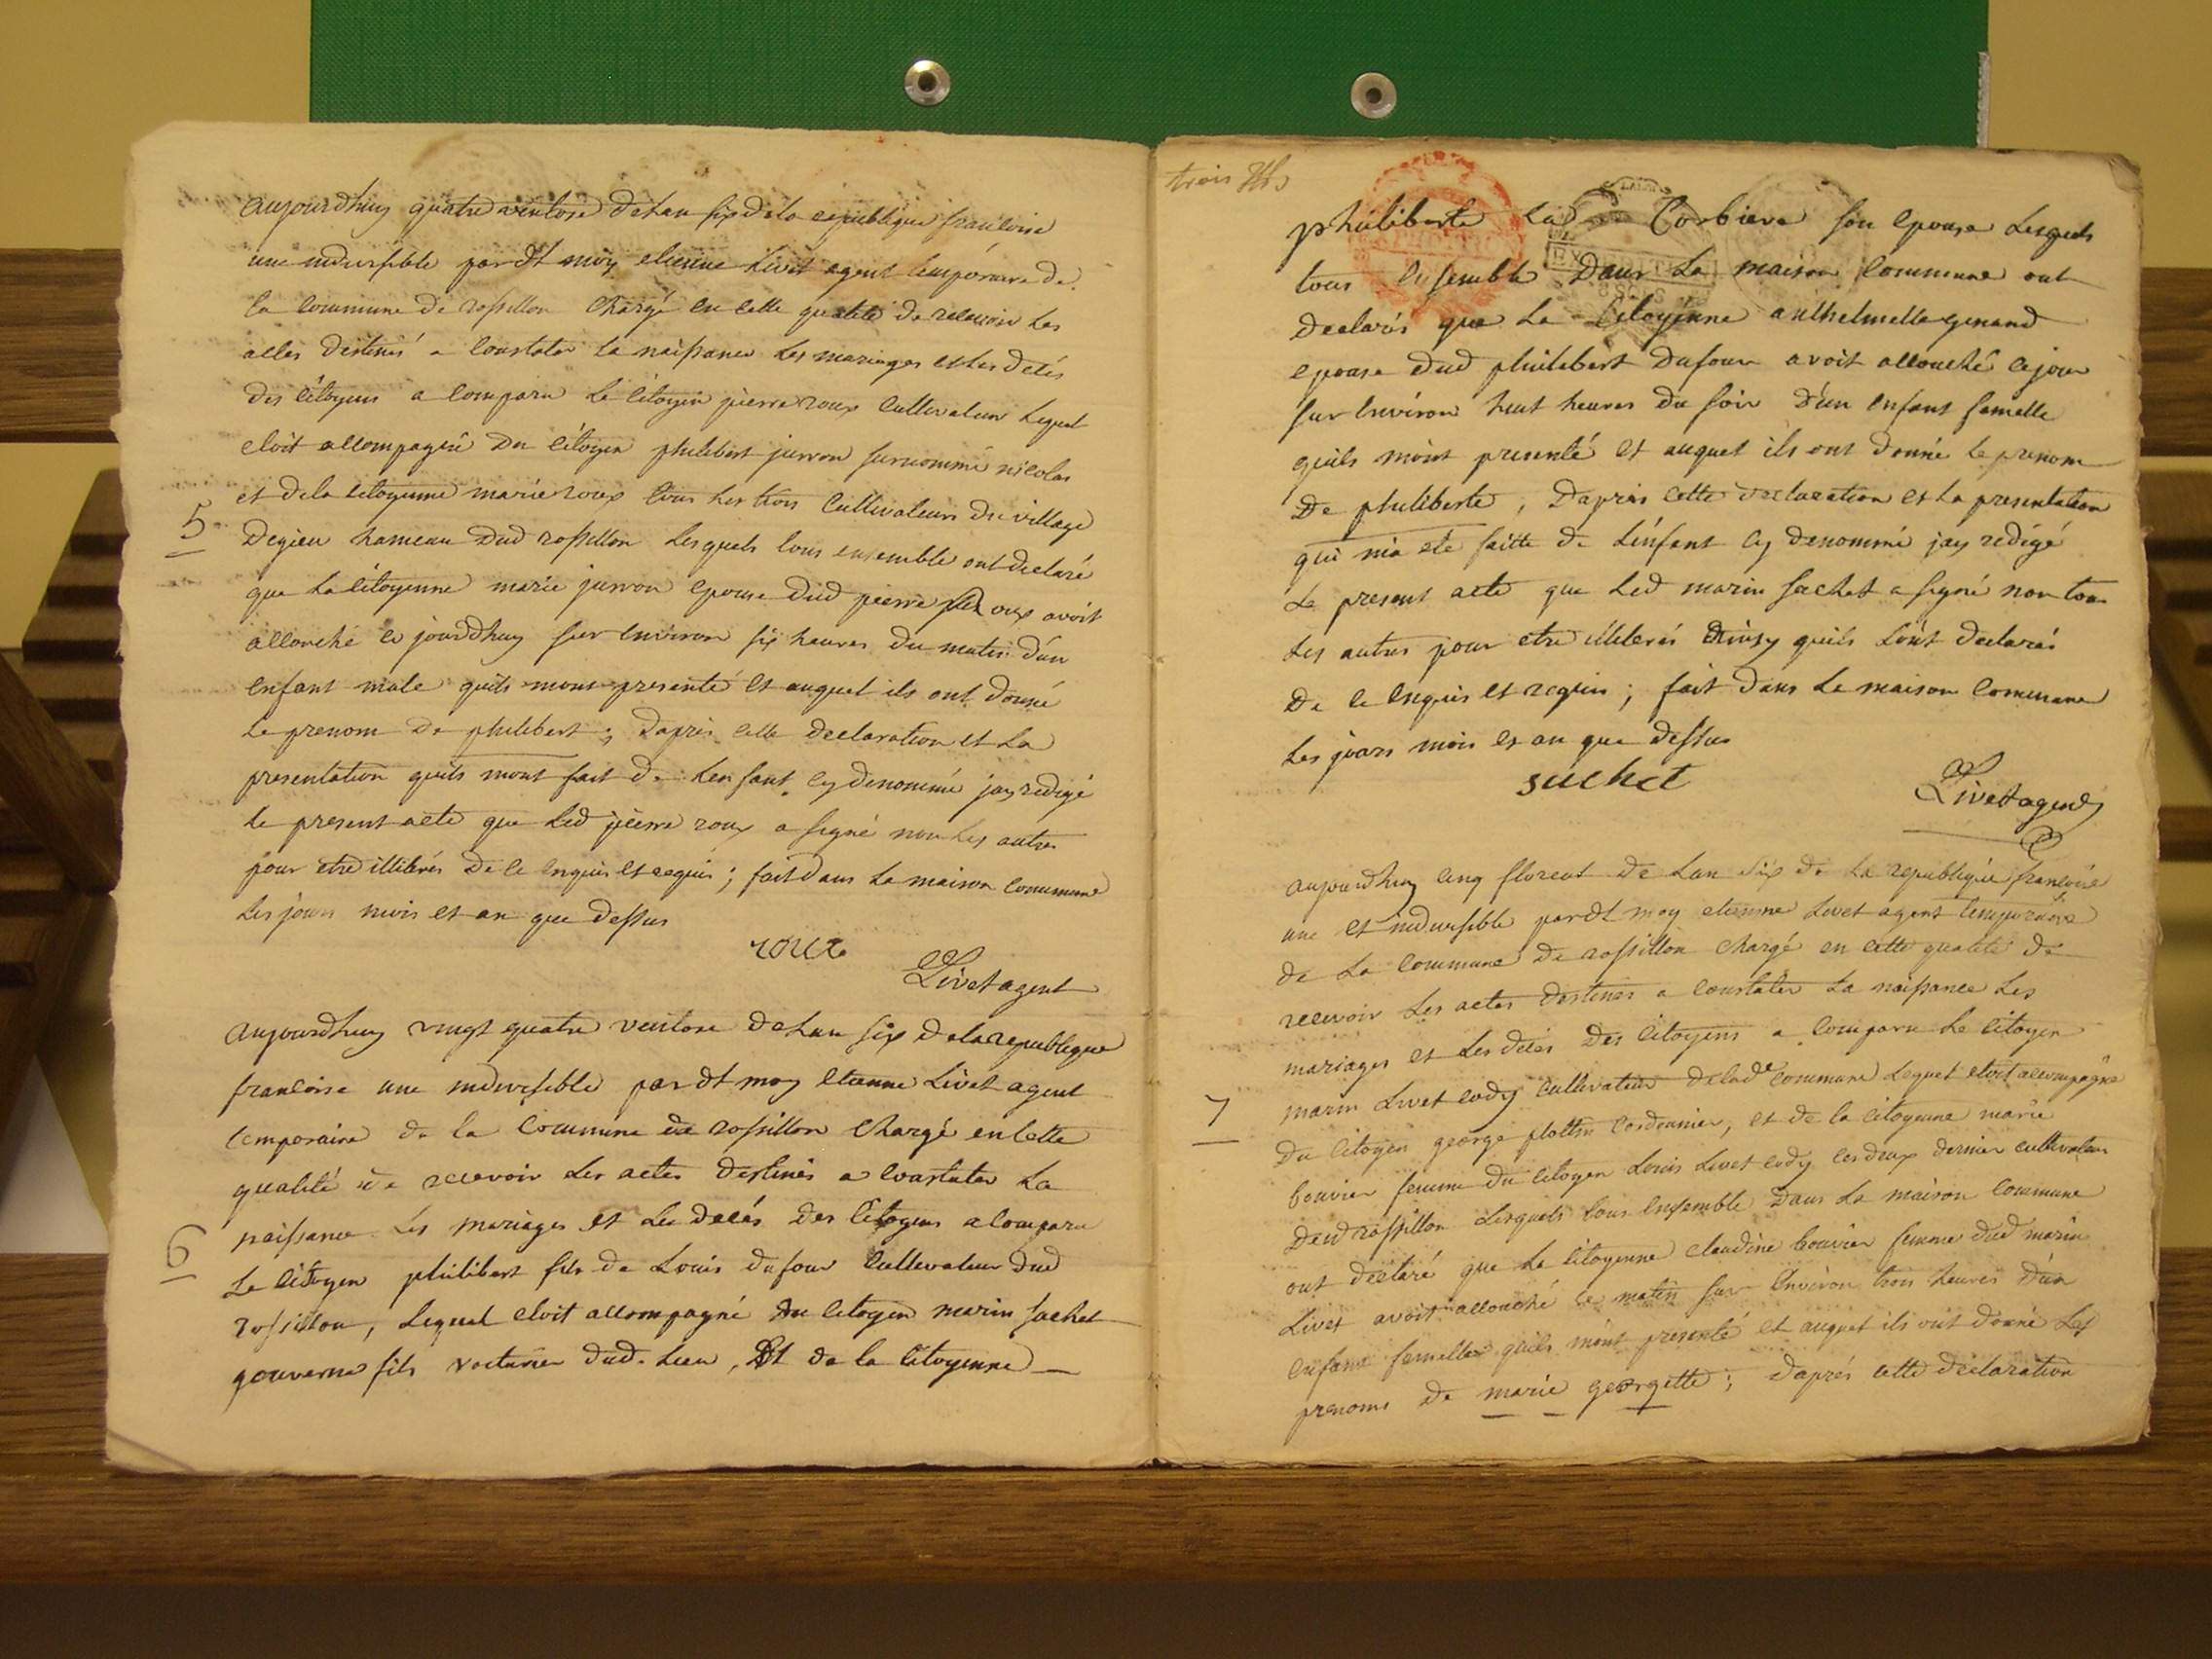 aujourdhuy quatre ventose de lan six de la republique francoise
une indivisible pardt moy etienne Livet agent temporaire de
la commune de rossillon chargé en cette qualité de recevoir Les
actes destinés a constater la naissance Les mariages et Les décés
des citoyens a comparu Le citoyen pierre roux cultivateur Lequel
etoit accompagné du citoyen philibert juvron surnommé nicolas
5
et de la citoyenne marie roux tous Les trois cultivateurs du village
degieu hameau dud rossillon Lesquels tous ensemble ont declaré
que La citoyenne marie juvron epouse dud pierre roux avoit
accouché ce jourdhuy sur environ six heures du matin dun
enfant male quils mont presenté et auquel ils ont donné
Le prenom de philibert ; dapres cette declaration et La
presentation quils mont fait de Lenfant cy denommé jay redigé
le present acte que Led pierre roux a signé non Les autres
pour etre illiterés de ce enquis et requis ; fait dans La maison commune
Les jours mois et an que dessus
roux
Livet agent
aujourdhuy vingt quatre ventose de Lan six de la republique
francoise une indivisible pardt moy etienne Livet agent
temporaire de la commune de rossillon chargé en cette
qualité de recevoir Les actes destinés a constater La
naissance Les mariages et Les décés des citoyens a comparu
6
Le citoyen philibert fils de Louis dufour cultivateur dud
rossillon, Lequel etoit accompagné du citoyen marin suchet
gouverne fils voiturier dud. Lieu, Et de la citoyenne
trois
philiberte La Corbiere son epouse Lesquels
tous ensemble dans La maison commune ont
declarés que La Citoyenne anthelmette genand
epouse dud philibert dufour avoit accouché ce jour
sur environ huit heures du soir d'un enfant femelle
quils mont presenté et auquel ils ont donné le prenom
De philiberte , Dapres cette declaration et La presentation
qui m'a eté faitte de L'enfant cy denommé jay redigé
Le present acte que Led marin suchet a signé non tous
Les autres pour etre illiterés ainsy quils L'ont declarés
De ce enquis et requis ; fait dans La maison commune
Les jours mois et an que dessus
suchet
Livet agent
aujourdhuy cinq floreal de Lan six de La republique francoise
une et indivisible pardt moy etienne Livet agent temporaire
de La commune de rossillon chargé en cette qualité de
recevoir Les actes destinés a constater La naissance Les
mariages et Les décés des citoyens a comparu Le citoyen
7
marin Livet cody cultivateur de lade commune Lequel etoit accompagné
Du citoyen george plottin cordonnier, et de la citoyenne marie
bouvier femme du citoyen Louis Livet cody Les deux dernier cultivateurs
Dud rossillon Lesquels tous ensemble dans La maison commune
ont declaré que La citoyenne claudine bouvier femme dud marin
Livet avoit accouché ce matin sur environ trois heures d'un
enfant femelle quils m'ont presenté et auquel ils ont donné Les
prenoms de marie georgette ; daprés cette declaration